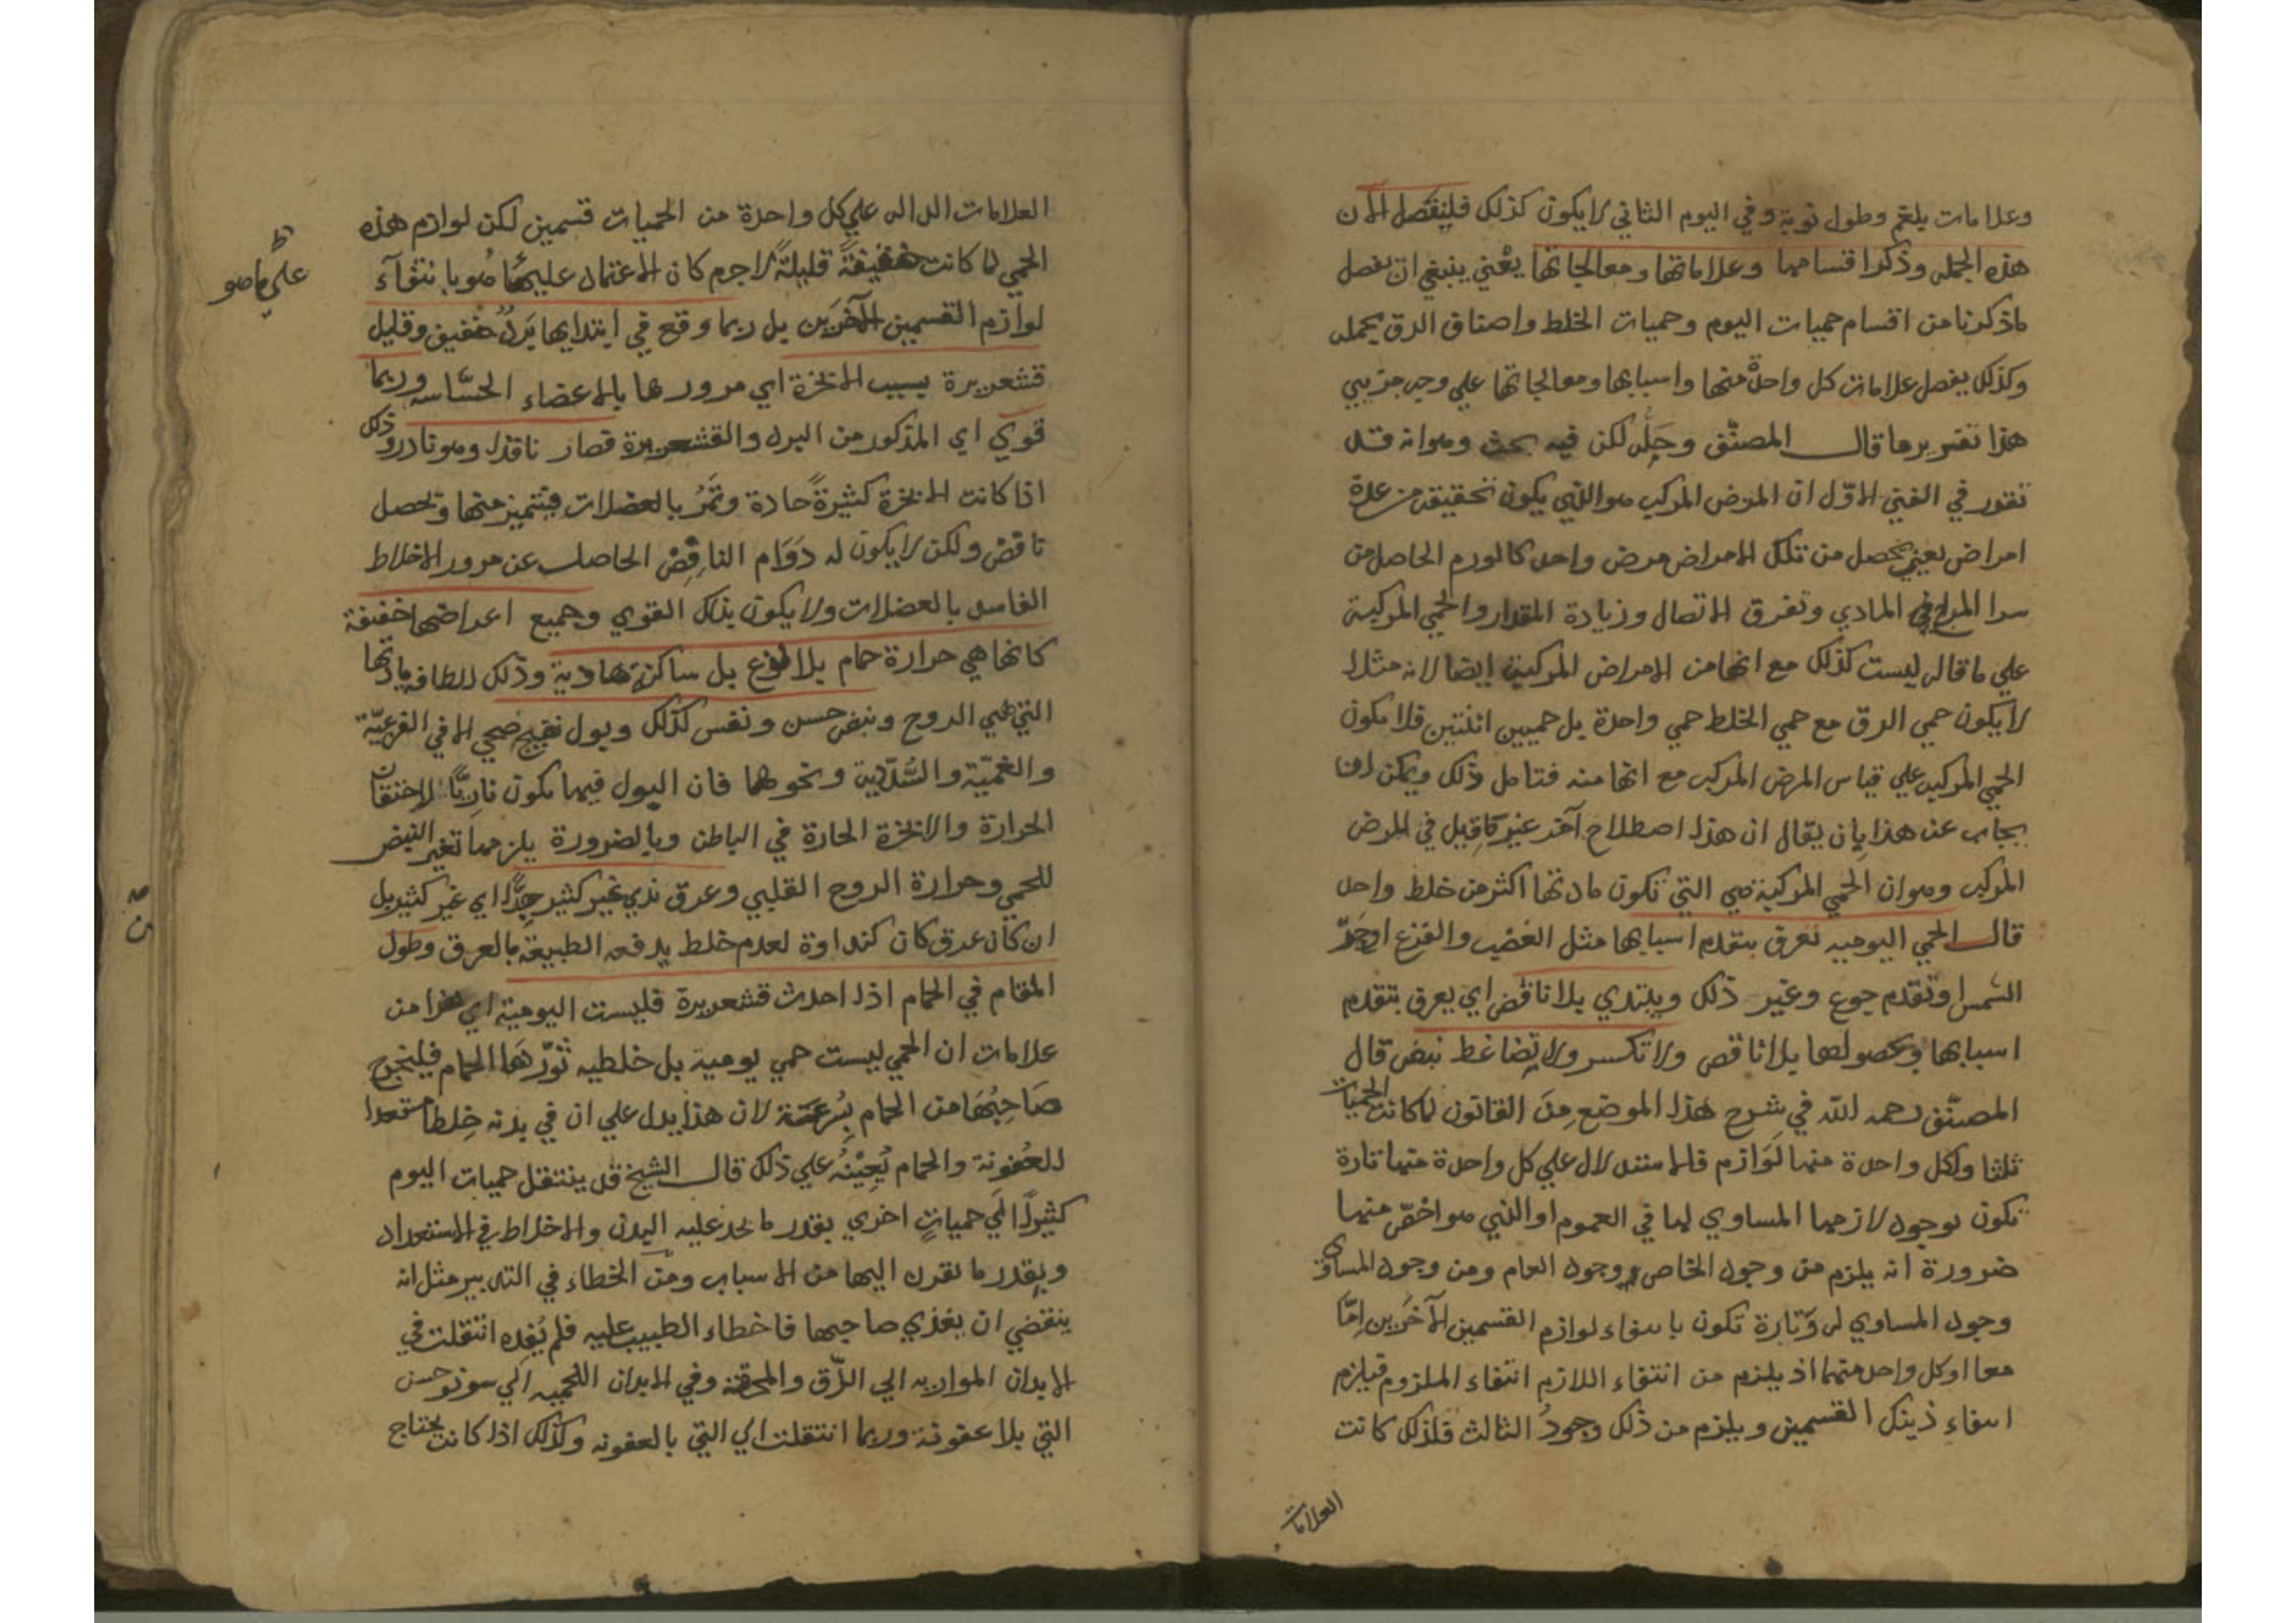 وعلامات بلغم وطول نوبة وفي اليوم الثاني لا يكون كذلك فلنفصل الآن
هذه الجمله وذكر اقسامها وعلاماتها ومعالجاتها يعني ينبغي ان نفصل
ماذكرنا من اقسام حميات اليوم وحميات الخلط واصناف الدق بجمله
وكذلك يفصل علامات كل واحدة منها واسبابها ومعالجاتها علي وجه جزييي
هذا تقرير ما قال المصنّف وحلّه لكن فيه بحث وهو انه قد
تقرر في الفن الاوّل ان المرض المركب هو الذي يكون تحقيقه من عدة
امراض يعني يحصل من تلك الامراض مرض واحد كالورم الحاصل من
سوا المزاج المادي وتفرق الاتصال وزيادة المقدار والحمي المركبة
علي ما قال ليست كذلك مع انها من الامراض المركبة ايضا لانه مثلا
لا يكون حمي الدق مع حمي الخلط حمي واحدة بل حميين اثنتين فلا يكون
الحمي المركبه علي قياس المرض المركب مع انها منه فتامل ذلك ويمكن ان
يجاب عن هذا بان يقال ان هذا اصطلاح آخر غير ما قيل في المرض
المركب وهو ان الحمي المركبة هي التي تكون مادتها اكثر من خلط واحد
قال الحمي اليوميه تعرف بتقدم اسبابها مثل الغضب والفزع او حرّ
الشمس او تقدم جوع وغير ذلك ويبتدي بلا نافض اي يعرف بتقدم
اسبابها وبحصولها بلا نافض ولا تكسر ولا تضاغط نبض قال
المصنّف رحمه الله في شرح هذا الموضع مِنَ القانون لما كانت الحميات
ثلثا ولكل واحدة منها لَوَازم فالاستدلال علي كل واحدة منها تارة
تكون بوجود لازمها المساوي لها في العموم او الذي هو اخصّ منها
ضرورة انه يلزم من وجود الخاص وجود العام ومن وجود المساوي
وجود المساوي له وَتارة تكون بانتفاء لوازم القسمين الآخَرين اِمّا
معا او كل واحد منهما اذ يلزم من انتفاء اللازم انتفاء الملزوم فيلزم
انتفاء ذينك القسمين ويلزم من ذلك وجودُ الثالث فلذلك كانت
العلامات
العلامات الداله علي كل واحدة من الحميات قسمين لكن لوازم هذه
الحمي لما كانت خفيفةً قليلةً لا جرم كان الاعتماد عليها هو بانتفآء
لوازم القسمين الآخَرَين بل ربما وقع في ابتدايها بَردٌ خفيف وقليل
قشعريرة بسبب الابخرة اي مرورها بالاعضاء الحسّاسه وربما
قوي اي المذكور من البرد والقشعريرة فصار نافضا وهو نادر وذلك
اذا كانت الابخرة كثيرةً حادة وتَمرُ بالعضلات فيتميز منها وتحصل
نافض ولكن لا يكون له دَوَام النافِض الحاصل عن مرور الاخلاط
الفاسد بالعضلات ولا يكون بذلك القوي وجميع اعراضها خفيفة
كانها هي حرارة حمام بلا لذع بل ساكنة هادية وذلك للطافه مادتها
التي هي الروح ونبض حسن ونفس كذلك وبول نضيج صحي الا في الفزعيّة
والغميّة والسُّدّية ونحوهما فان البول فيها يكون ناريًّا لاختقان
الحرارة والابخرة الحارة في الباطن وبالضرورة يلزمها تغير النبض
للحمي وحرارة الروح القلبي وعرق ندي غير كثير جِدًّا اي غير كثير بل
ان كان عرق كان كنداوة لعدم خلط يدفعه الطبيعة بالعرق وطول
المقام في الحمام اذا احدث قشعريرة فليست اليومية اي هذا من
علامات ان الحمي ليست حمي يومية بل خلطيه ثَوّرهَا الحمام فليخرج
صَاحِبُهَا من الحمام بِسُرعَة لان هذا يدل علي ان في بدنه خِلطا مستعدا
للعُفونة والحمام يُعِيْنُهُ علي ذلك قال الشيخ قد ينتقل حميات اليوم
كثيرًا الَي حمياتٍ اخري بقدر ما نجد عليه البدن والاخلاط في الاستعداد
وبقدر ما يقرن اليها من الاسباب ومن الخطاء في التدبير مثل انه
ينقضي ان يغذي صاحبها فاخطاء الطبيب عليه فلم يُغِذه انتقلت في
الابدان المواريه الي الدّق والمحرقة وفي الابدان اللحميه الَي سونوخس
التي بلا عفونة وربما انتقلت الي التي بالعفونه وكذلك اذا كانت يحتاج